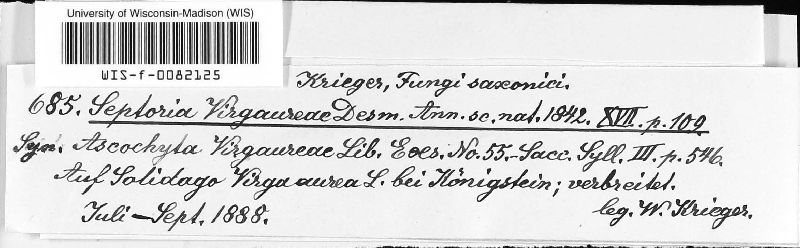 University of Wisconsin-Madison (WIS)
WIS-f-0082125
Krieger, Fungi saxonici.
685. Septoria Virgaureae Desm. Ann. sc. nat. 1842. XVII. p. 109
Syn. Ascochyta Virgaureae Lib. Exs. No. 55. - Sacc. Syll. III. p. 546.
Auf Solidago Virga aurea L. bei Königstein; verbreitet.
Juli - Sept. 1888. leg. W. Krieger.